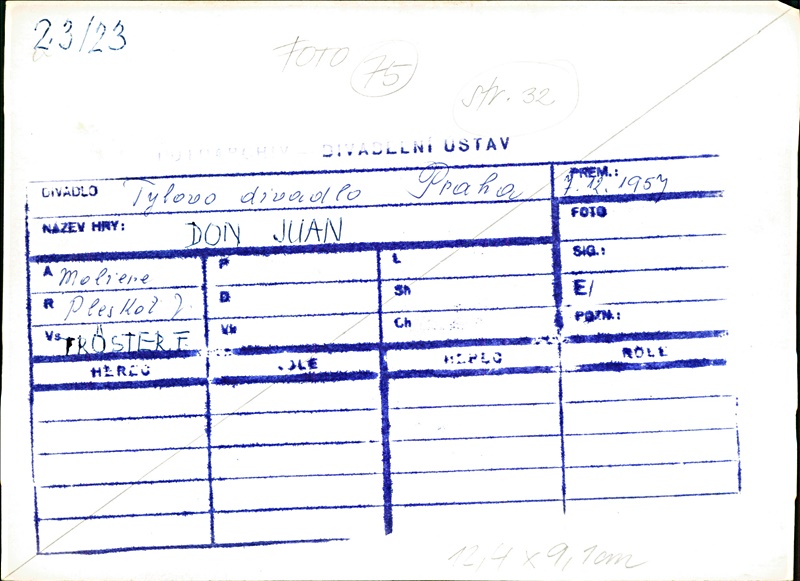 23/23
FOTO 75
str. 32
FOTOARCHIV - DIVADELNÍ ÚSTAV
DIVADLO Tylovo divadlo Praha
PREM.: 7.12.1957
NÁZEV HRY: DON JUAN
FOTO
A Moliere
P
L
SIG.:
R Pleskot J.
D
Sh
E/
Vs TRÖSTER F.
Ch
POZN.:
HEREC ROLE HEREC ROLE
12,4 x 9,1cm